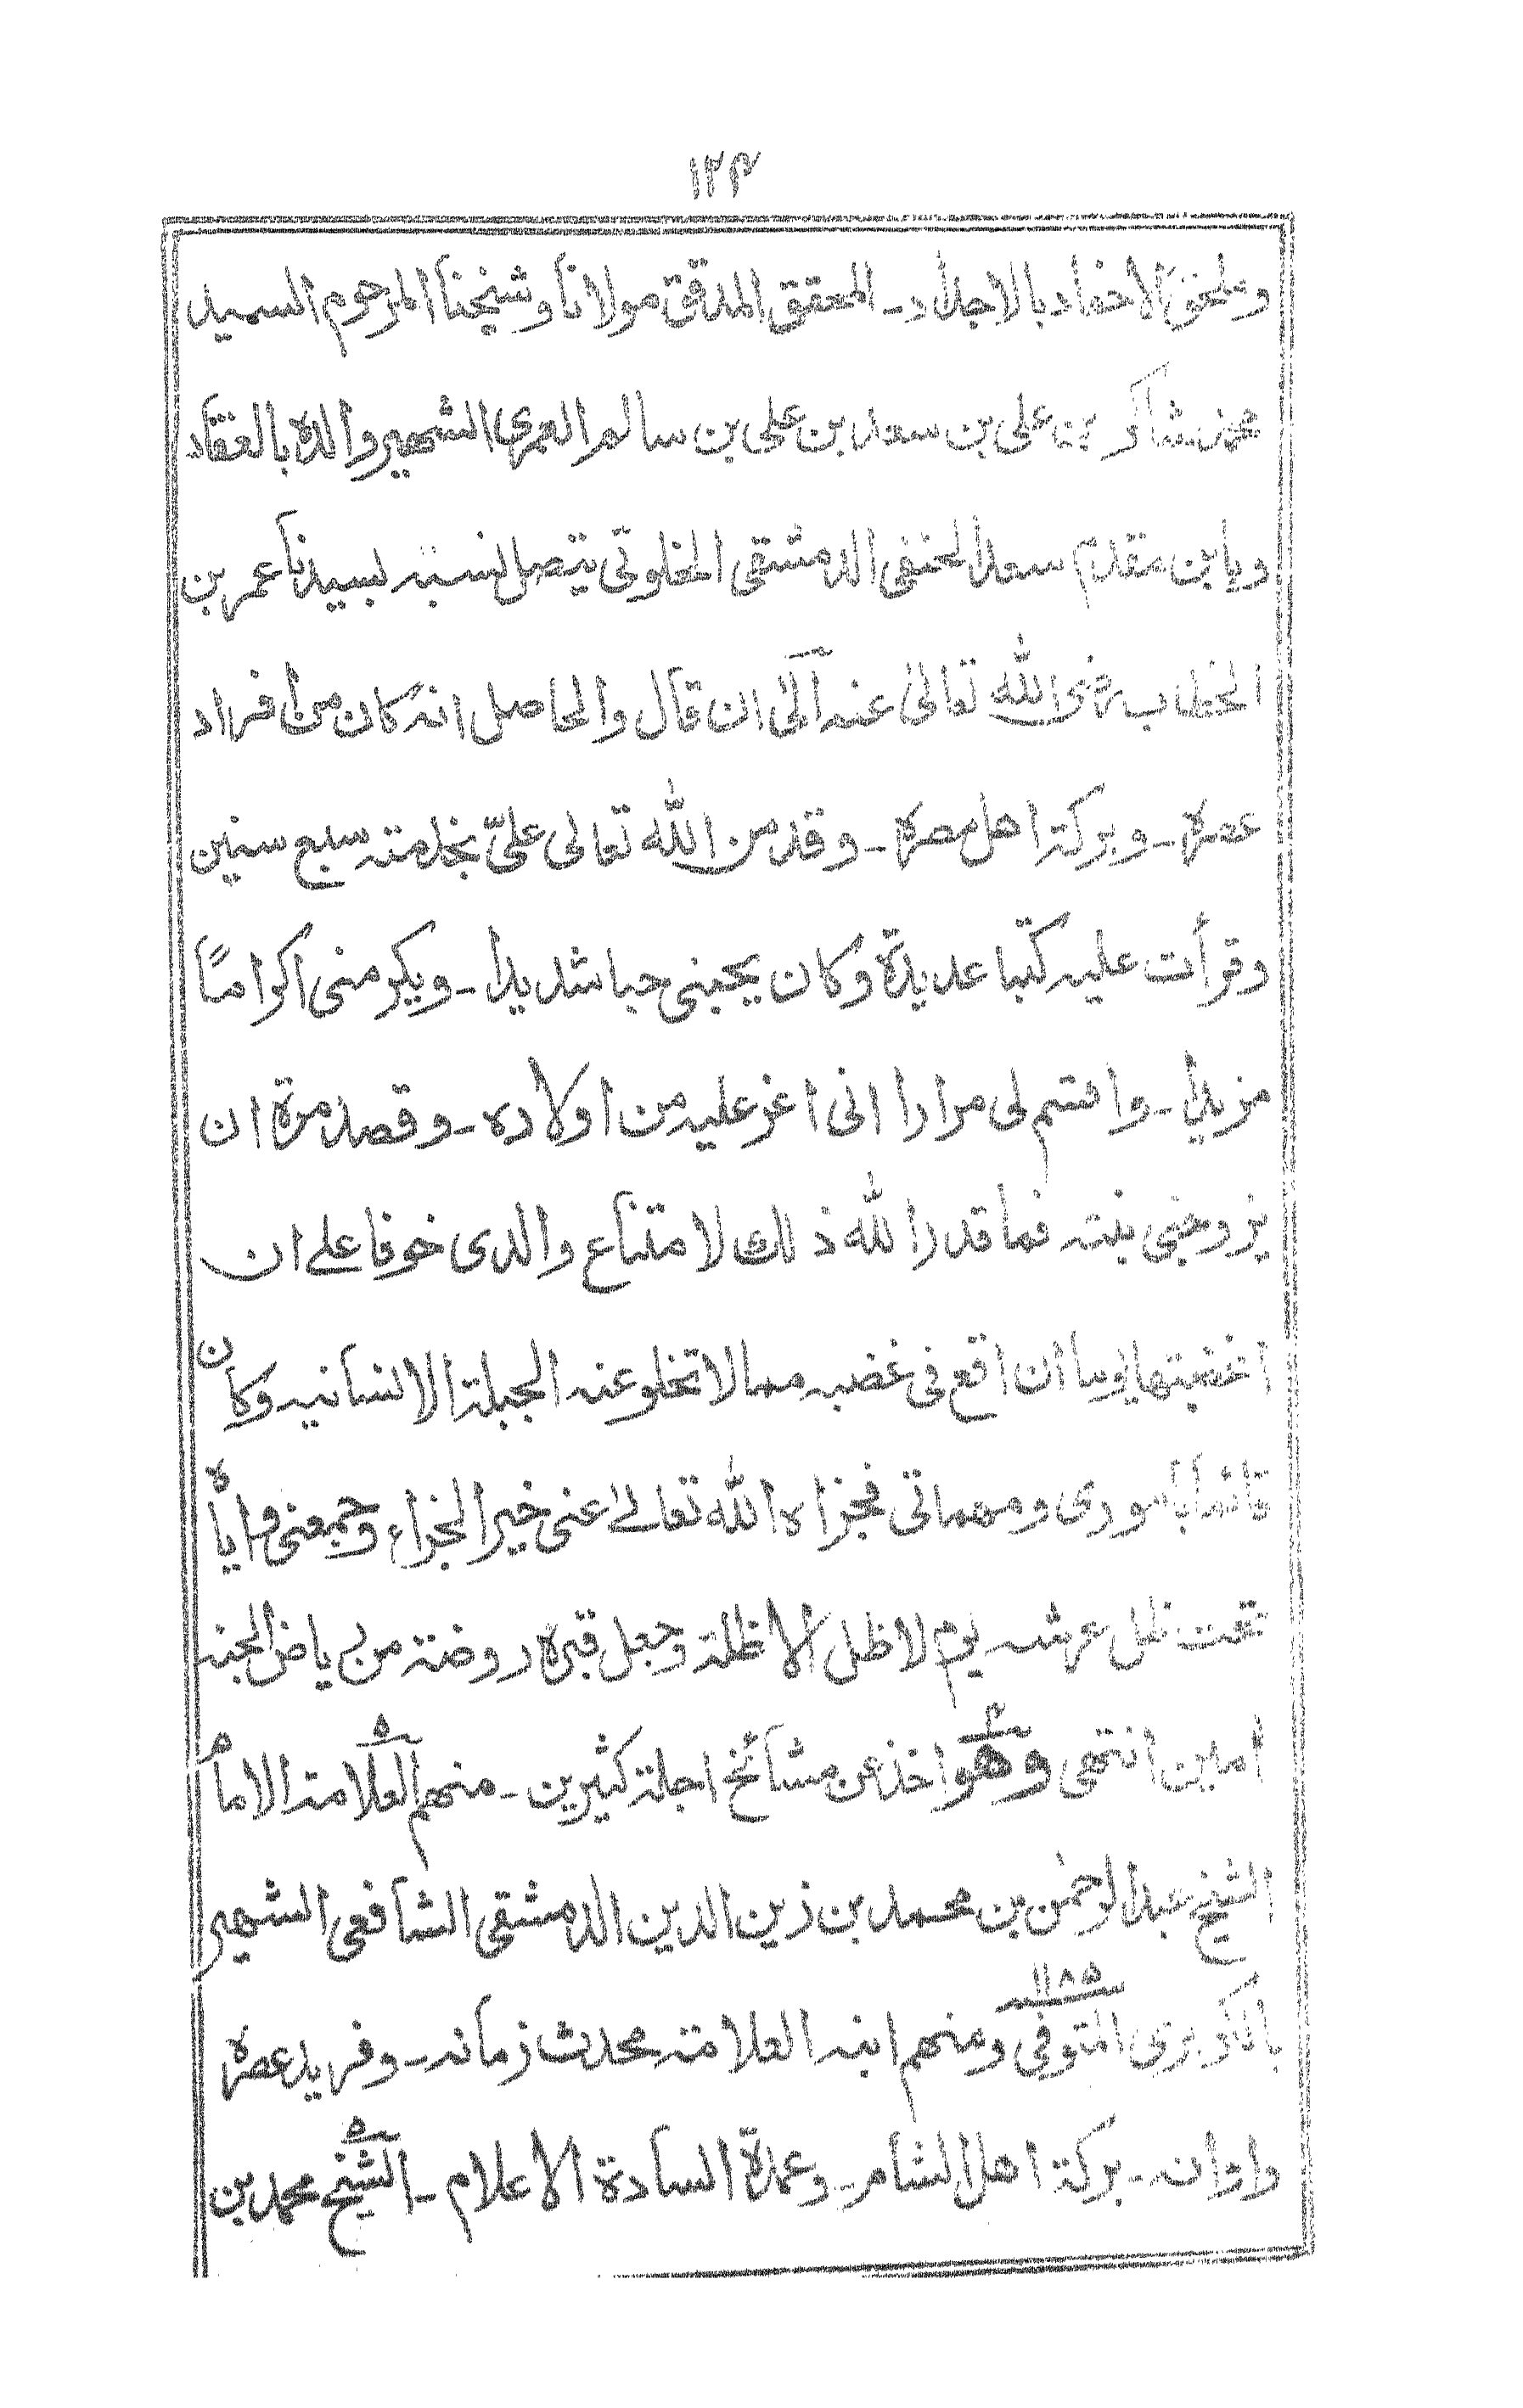 ١٢٣
وملحق الاحفاد بالاجداد ـ المحقق المدقق مولانا وشيخنا المرحوم السيد
محمد شاكر بن على بن سعد بن على بن سالم العمرى الشهير والده بالعقاد
وبابن مقدم سعد الحنفى الدمشقى الخلوتى يتصل نسبه لسيدنا عمر بن
الخطاب رضى الله تعالىٰ عنه الىٰ ان قال والحاصل انه كان من افراد
عصره ـ وبركة اهل مصره ـ وقد من الله تعالى علىّ بخدمته سبع سنين
وقرأت عليه كتبا عديدة وكان يحبنى حبا شديدا ـ ويكرمنى اكراماً
مزيدا ـ واقسم لى مرارا انى اعز عليه من اولاده ـ وقصد مرة ان
يزوجنى بنته فما قدر الله ذلك لامتناع والدى خوفا على ان
اغضبتها يوما ان اقع فى غضبه مما لا تخلو عنه الجبلة الانسانيه وكان
قائما بأمورى ومهماتى فجزاه الله تعالىٰ عنى خير الجزاء وجمعنى واياه
تحت ظل عرشه يوم لا ظل الا ظله وجعل قبره روضة من رياض الجنه
امين انتهى وهو اخذ عن مشائخ اجلة كثيرين ـ منهم العلامة الامام
الشيخ عبد الرحمٰن بن محمد بن زين الدين الدمشقى الشافعى الشهير
بالكزبرى المتوفى ١١٨٥ ومنهم ابنه العلامة محدث زمانه ـ وفريد عصره
واوانه ـ بركة اهل الشام ـ وعمدة السادة الاعلام ـ الشيخ محمد بن